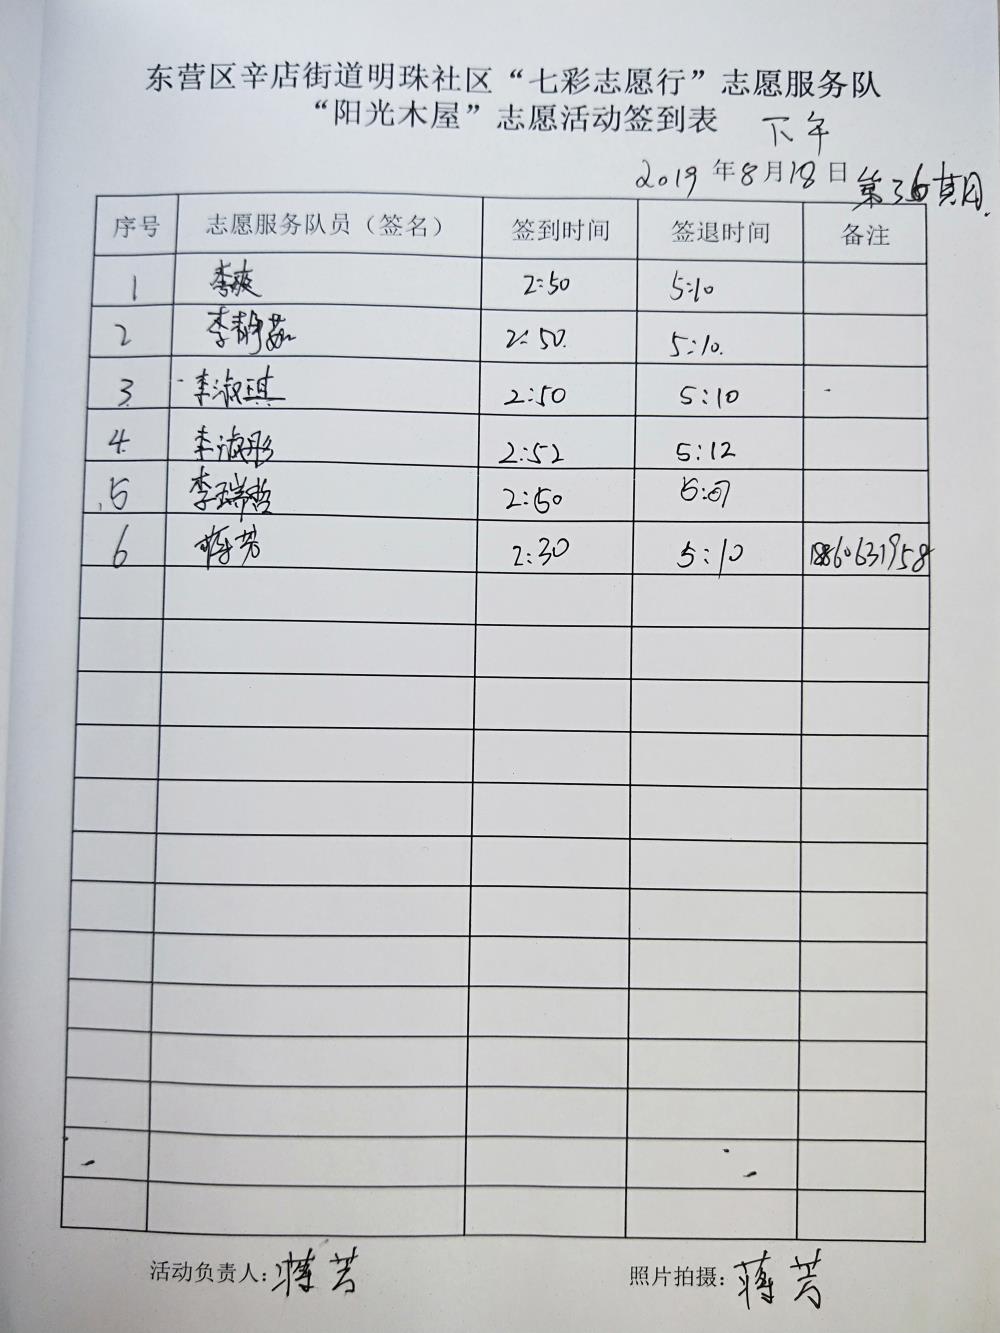 东营区辛店街道明珠社区“七彩志愿行”志愿服务队
“阳光木屋”志愿活动签到表 下午
2019年8月18日 第36期
序号 志愿服务队员（签名） 签到时间 签退时间 备注
1 李爽 2:50 5:10
2 李静茹 2:50. 5:10.
3. 李淑琪 2:50 5:10
4. 李淑彤 2:52 5:12
5 李瑞哲 2:50
6 蒋芳 2:30 5:10
活动负责人：蒋芳 照片拍摄：蒋芳